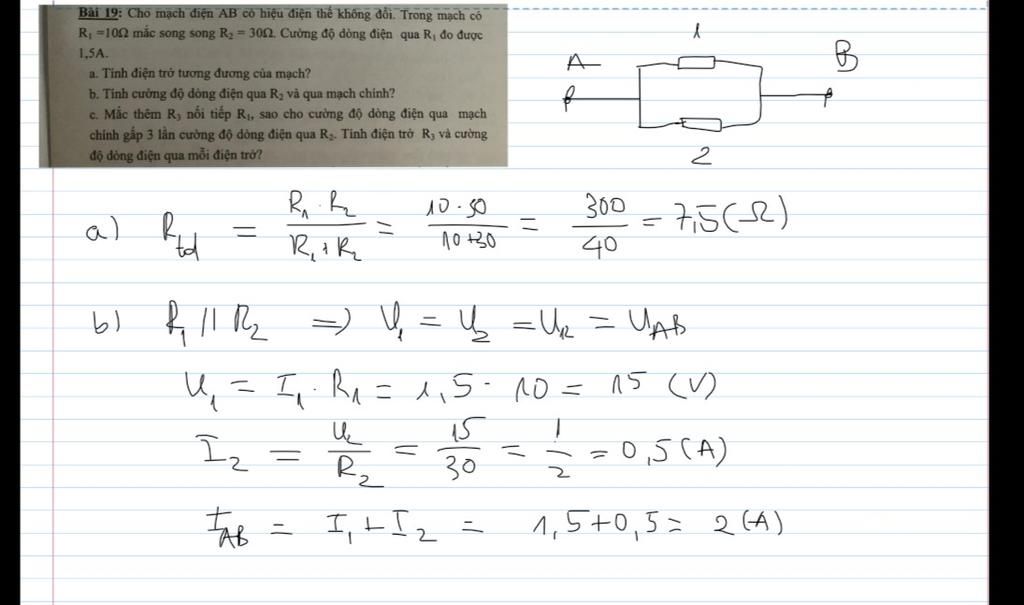 Bài 19: Cho mạch điện AB có hiệu điện thế không đổi. Trong mạch có
R₁ =10Ω mắc song song R₂ = 30Ω. Cường độ dòng điện qua R₁ đo được
1,5A.
a. Tính điện trở tương đương của mạch?
b. Tính cường độ dòng điện qua R₂ và qua mạch chính?
c. Mắc thêm R₃ nối tiếp R₁, sao cho cường độ dòng điện qua mạch
chính gấp 3 lần cường độ dòng điện qua R₂. Tính điện trở R₃ và cường
độ dòng điện qua mỗi điện trở?
1
A B
2
a) R_td = (R₁ · R₂)/(R₁ + R₂) = (10 · 30)/(10 + 30) = 300/40 = 7,5 (Ω)
b) R₁ // R₂ => U₁ = U₂ = U₁₂ = U_AB
U₁ = I₁ · R₁ = 1,5 · 10 = 15 (V)
I₂ = U₂/R₂ = 15/30 = 1/2 = 0,5 (A)
I_AB = I₁ + I₂ = 1,5 + 0,5 = 2 (A)